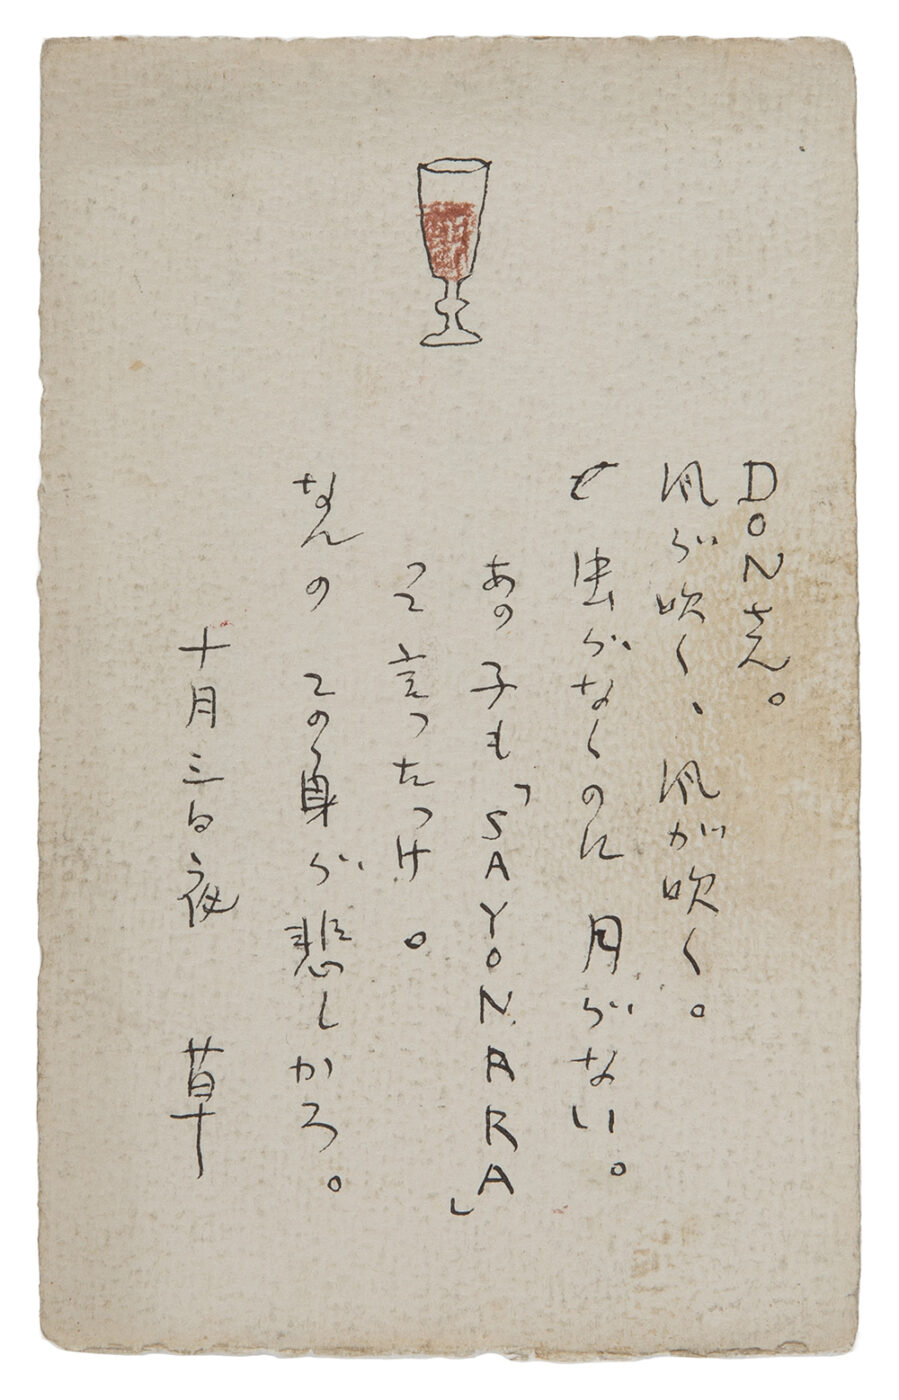 DONさん。
風が吹く、風が吹く。
虫がなくのに 月がない。
あの子も「SAYONARA」
つて言つたつけ。
なんの この身が悲しかろ。
十月三日夜 草